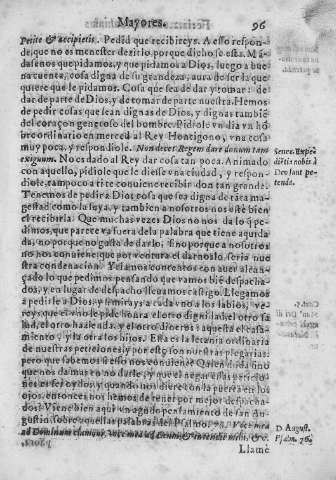 Mayores. 96
Petite & accipietis. Pedid que recibireys. A esso respon-
de, que no es menester dezirlo, porque dicho se esta. Má-
dasenos que pidamos, y que pidamos a Dios, luego a bue
na cuenta, cosa digna de su grandeza, aura de ser la que
quiere que le pidamos. Cosa que sea de dar y tomar: de
dar de parte de Dios, y de tomar de parte nuestra. Hemos
de pedir cosas que sean dignas de Dios, y dignas tambié
del coraçon generoso del hombre. Pidiole vn dia vn hó
bre ordinario en merced al Rey Hontigono, vna cosa
muy poca, y respondiole. Non decet Regem dare donum tam
exiguum. No es dado al Rey dar cosa tan poca. Animado
con aquello, pidiole que le diesse vna ciudad, y respon-
diole, tampoco a ti te conuiene recibir don tan grande.
Tenemos de pedir a Dios cosa que sea digna de tata ma-
gestad como la suya, y tambien a nosotros nos esté bien
el recibirla. Que muchas vezes Dios no nos da lo q pe-
dimos, que parece va fuera de la palabra que tiene aqui da
da, no porque no gusta de darlo, sino porque a nosotros
no nos conuiene: que por ventura el darnoslo, seria nue
stra condenacion. Y estamos contentos con auer alcan-
çado lo que pedimos pensando que vamos bié despacha-
dos, y en lugar de despacho lleuamos castigo. Llegamos
a pedirle a Dios, y si mirays a cada vno a los labios, ve-
reys que el vno le pide honra el otro dignidad, el otro sa
lud, el otro hazienda, y el otro dineros: aquesta el casa-
miento, y la otra los hijos. Esta es la letania ordinaria
de nuestras peticiones, y por esto son nuestras plegarias:
pero que sabemos si esso nos conuiene? Quien
que nos da mas en no darle, y que el
Dios, y quando nos diere con la puerta en los
ojos, entonces nos hemos de tener por mejor despa-
chados. Viene bien aqui vn agudo pensamiento de san Au
gustin sobre aquellas palabras del Psalmo. 76. Voce mea
ad Dominum clamaui, voce mea ad Deum, & intendit mihi, &c.
Llamè
Senec. Expe
dit is nobis à
Deo sunt pe-
tenda.
D. August.
Psalm. 76.